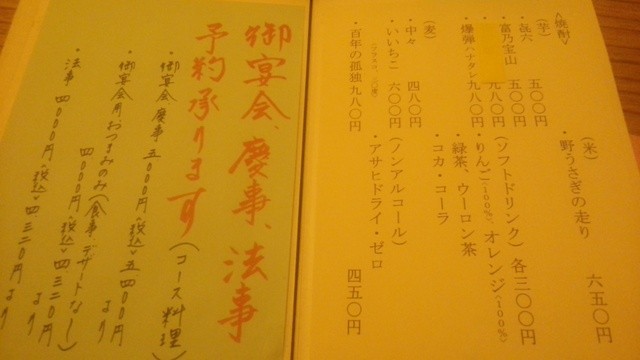 <焼酎>
(芋)
・㐂六 五〇〇円
・富乃宝山 五〇〇円
九八〇円
・爆弾ハナタレ 九八〇円
(麦)
・中々 四八〇円
・いいちこ 六〇〇円
・百年の孤独 九八〇円
(米)
・野うさぎの走り 六五〇円
(ソフトドリンク) 各三〇〇円
・りんご(100%)、オレンジ(100%)
・緑茶、ウーロン茶
・コカ・コーラ
(ノンアルコール)
・アサヒドライ・ゼロ 四五〇円
御宴会、慶事、法事
予約承ります
(コース料理)
・御宴会 慶事 五000円(税込)五四00円より
・御宴会用おつまみのみ(食事・デザートなし)
四000円(税込)四三二0円より
・法事 四000円(税込)四三二0円より